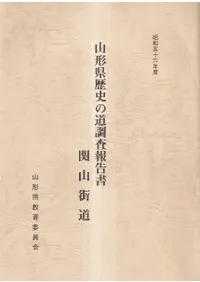 昭和五十六年度
山形県歴史の道調査報告書
関山街道
山形県教育委員会